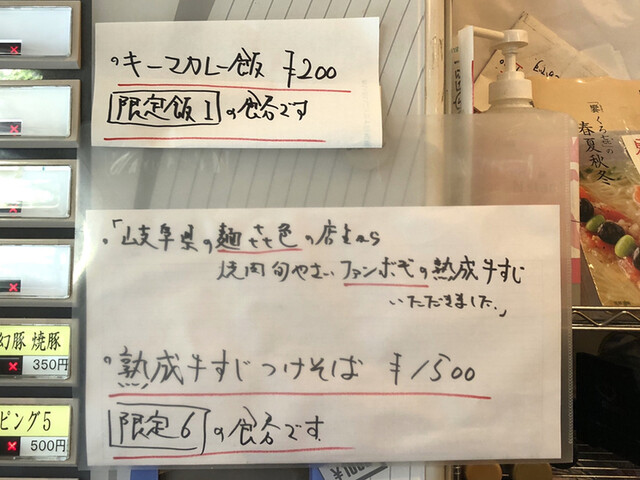 キーマカレー飯 ¥200
限定飯1の食券です
「岐阜県の麺㐂色の店主から
焼肉旬やさいファンボギの熟成牛すじ
いただきました。」
熟成牛すじつけそば ¥1500
限定6の食券です
幻豚 焼豚
350円
ピング5
500円
くろぎの
春夏秋冬